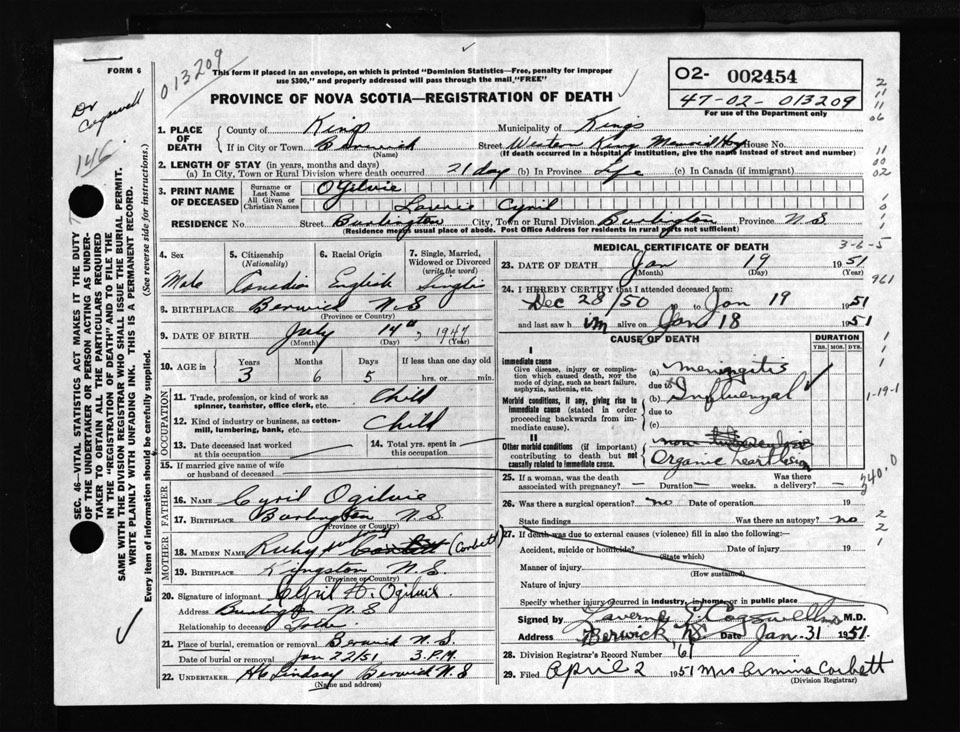 FORM 6
013209
This form if placed in an envelope, on which is printed "Dominion Statistics—Free, penalty for improper
use $300," and properly addressed will pass through the mail, "FREE"
PROVINCE OF NOVA SCOTIA—REGISTRATION OF DEATH
O2- 002454
47-02-013209
For use of the Department only
Dr
Cogswell
146
SEC. 46—VITAL STATISTICS ACT MAKES IT THE DUTY
OF THE UNDERTAKER OR PERSON ACTING AS UNDER-
TAKER TO OBTAIN ALL THE PARTICULARS REQUIRED
IN THE "REGISTRATION OF DEATH" AND TO FILE THE
SAME WITH THE DIVISION REGISTRAR WHO SHALL ISSUE THE BURIAL PERMIT.
WRITE PLAINLY WITH UNFADING INK. THIS IS A PERMANENT RECORD.
Every item of information should be carefully supplied. (See reverse side for instructions.)
1. PLACE OF DEATH
County of Kings Municipality of Kings
If in City or Town Berwick Street Western Kings Memorial Hosp House No.
(Name) (If death occurred in a hospital or institution, give the name instead of street and number)
2. LENGTH OF STAY (in years, months and days)
(a) In City, Town or Rural Division where death occurred 21 day (b) In Province Life (c) In Canada (if immigrant)
3. PRINT NAME OF DECEASED
Surname or Last Name Ogilvie
All Given or Christian Names Laurie Cyril
RESIDENCE No. Street Burlington City, Town or Rural Division Burlington Province N.S
(Residence means usual place of abode. Post Office Address for residents in rural parts not sufficient)
4. Sex 5. Citizenship (Nationality) 6. Racial Origin 7. Single, Married, Widowed or Divorced (write the word)
Male Canadian English Single
8. BIRTHPLACE Berwick N.S
(Province or Country)
9. DATE OF BIRTH July 14th, 1947
(Month) (Day) (Year)
10. AGE in Years Months Days If less than one day old
3 6 5 hrs. or min.
OCCUPATION
11. Trade, profession, or kind of work as spinner, teamster, office clerk, etc. Child
12. Kind of industry or business, as cotton-mill, lumbering, bank, etc. Child
13. Date deceased last worked at this occupation 14. Total yrs. spent in this occupation
15. If married give name of wife or husband of deceased
FATHER
16. NAME Cyril Ogilvie
17. BIRTHPLACE Burlington N.S.
(Province or Country)
MOTHER
18. MAIDEN NAME Ruby (Corbett)
19. BIRTHPLACE Kingston N.S.
(Province or Country)
20. Signature of informant Cyril H. Ogilvie
Address Burlington N.S
Relationship to deceased Father
21. Place of burial, cremation or removal Berwick N.S.
Date of burial or removal Jan 22/51 3.P.M.
22. UNDERTAKER H C Lindsay Berwick N.S
(Name and address)
MEDICAL CERTIFICATE OF DEATH
3-6-5
23. DATE OF DEATH Jan 19 1951
(Month) (Day) (Year)
24. I HEREBY CERTIFY that I attended deceased from:
Dec 28/50 to Jan 19 1951
and last saw him alive on Jan 18 1951
961
CAUSE OF DEATH DURATION
YRS. MOS. DYS.
I
Immediate cause
Give disease, injury or complication which caused death, NOT the mode of dying, such as heart failure, asphyxia, asthenia, etc.
(a) Meningitis
due to
Morbid conditions, if any, giving rise to immediate cause (stated in order proceeding backwards from immediate cause).
(b) Influenzal
due to
(c)
1-19-1
II
Other morbid conditions (if important) contributing to death but not causally related to immediate cause.
Organic heart lesion
340.0
25. If a woman, was the death associated with pregnancy? Duration weeks. Was there a delivery?
26. Was there a surgical operation? no Date of operation 19
State findings Was there an autopsy? no
27. If death was due to external causes (violence) fill in also the following:—
Accident, suicide or homicide? Date of injury 19
(State which)
Manner of injury
(How sustained)
Nature of injury
Specify whether injury occurred in industry, in home, or in public place
Signed by Laverne E Cogswell M.D.
Address Berwick NS Date Jan. 31 1951.
28. Division Registrar's Record Number 61
29. Filed April 2 1951 Mrs Ermina Corbett
(Division Registrar)